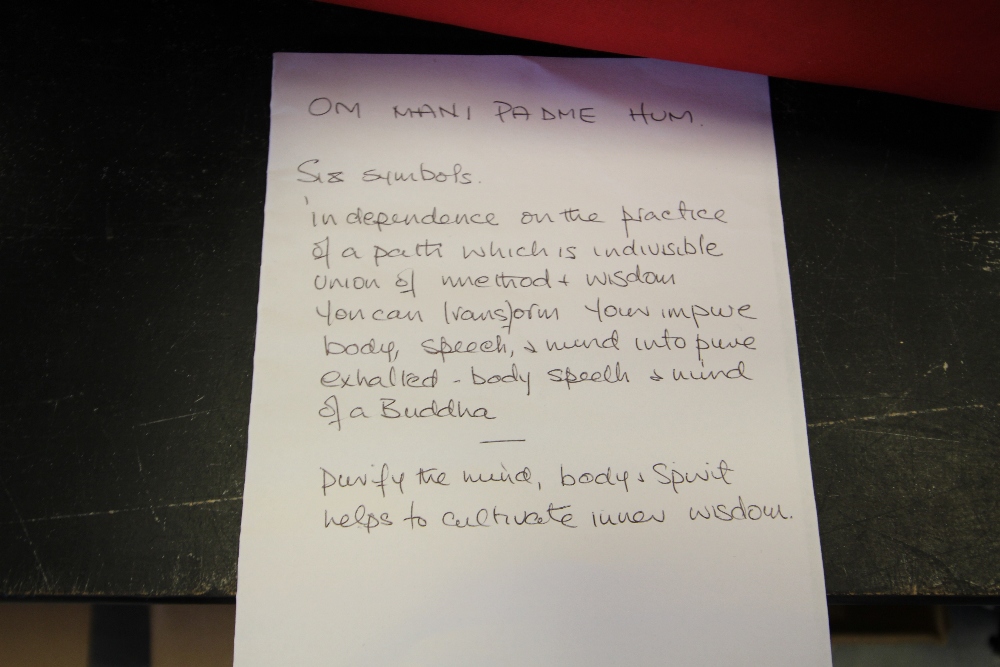 OM MANI PADME HUM.
Six symbols.
'in dependence on the practice
of a path which is indivisible
union of method + wisdom
You can transform your impure
body, speech, & mind into pure
exhalted - body speech & mind
of a Buddha
—
purify the mind, body & Spirit
helps to cultivate inner wisdom.